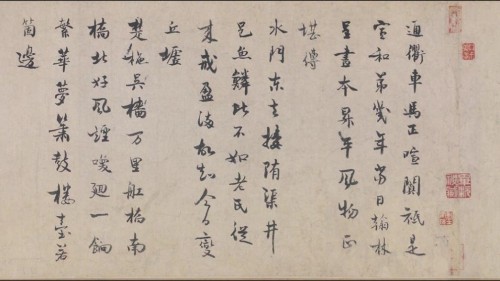 通衢車馬正喧闐祗是
宣和第幾年當日翰林
呈畫本昇平風物正
堪傳
水門東去接隋渠井
邑魚鱗比不如老氏從
來戒盈滿故知今日變
丘墟
楚柂吳檣万里舡橋南
橋北好風煙喚廻一餉
繁華夢簫鼓樓臺若
箇邊